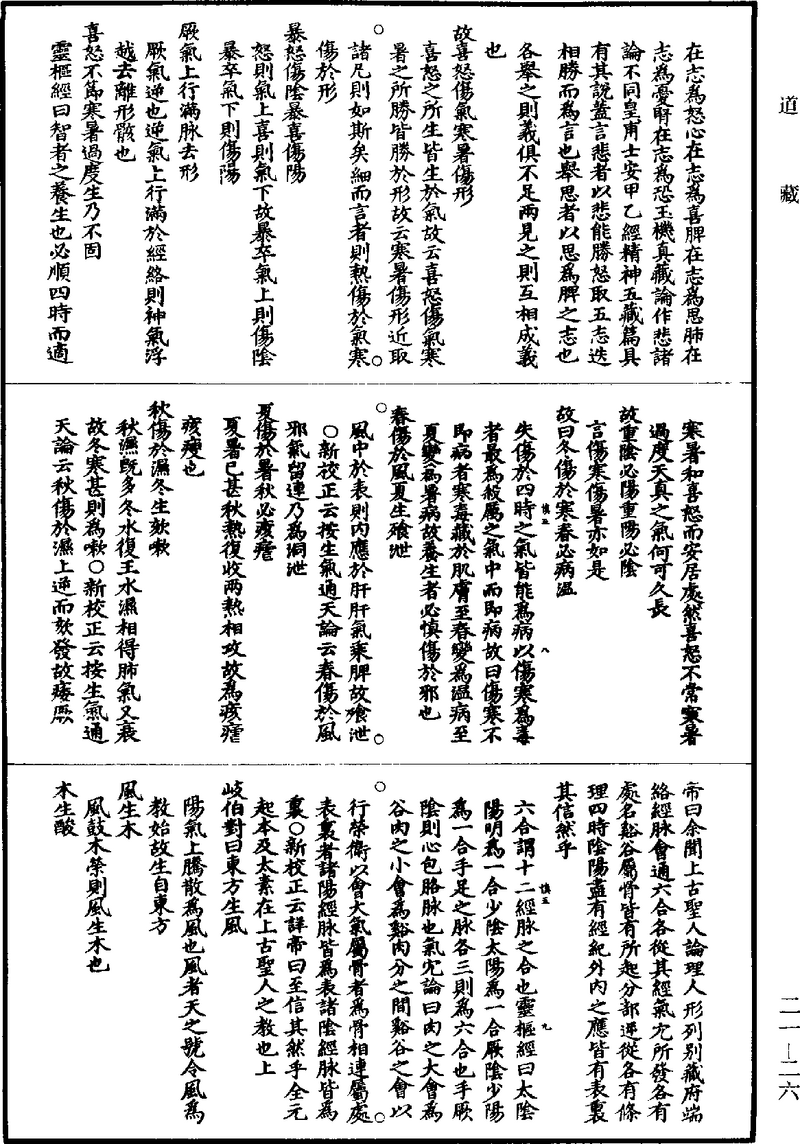 道藏
在志爲怒心在志爲喜脾在志爲思肺在
志爲憂腎在志爲恐玉機真藏論作悲諸
論不同皇甫士安甲乙經精神五藏篇具
有其說蓋言悲者以悲能勝怒取五志迭
相勝而爲言也舉思者以思爲脾之志也
各舉之則義俱不足兩見之則互相成義
也
故喜怒傷氣寒暑傷形
喜怒之所生皆生於氣故云喜怒傷氣寒
暑之所勝皆勝於形故云寒暑傷形近取
諸凡則如斯矣細而言者則熱傷於氣寒
傷於形
暴怒傷陰暴喜傷陽
怒則氣上喜則氣下故暴卒氣上則傷陰
暴卒氣下則傷陽
厥氣上行滿脉去形
厥氣逆也逆氣上行滿於經絡則神氣浮
越去離形骸也
喜怒不節寒暑過度生乃不固
靈樞經曰智者之養生也必順四時而適
寒暑和喜怒而安居處然喜怒不常寒暑
過度天真之氣何可久長
故重陰必陽重陽必陰
言傷寒傷暑亦如是
故曰冬傷於寒春必病溫
慎五 八
失傷於四時之氣皆能爲病以傷寒爲毒
者最爲殺厲之氣中而即病故曰傷寒不
即病者寒毒藏於肌膚至春變爲溫病至
夏變爲暑病故養生者必慎傷於邪也
春傷於風夏生飱泄
風中於表則內應於肝肝氣乘脾故飱泄
○新校正云按生氣通天論云春傷於風
邪氣留連乃爲洞泄
夏傷於暑秋必痎瘧
夏暑已甚秋熱復收兩熱相攻故爲痎瘧
痎瘦也
秋傷於濕冬生欬嗽
秋濕既多冬水復王水濕相得肺氣又衰
故冬寒甚則爲嗽○新校正云按生氣通
天論云秋傷於濕上逆而欬發故痿厥
帝曰余聞上古聖人論理人形列別藏府端
絡經脉會通六合各從其經氣穴所發各有
處名谿谷屬骨皆有所起分部逆從各有條
理四時陰陽盡有經紀外內之應皆有表裏
其信然乎
慎五 九
六合謂十二經脉之合也靈樞經曰太陰
陽明爲一合少陰太陽爲一合厥陰少陽
爲一合手足之脉各三則爲六合也手厥
陰則心包胳脉也氣穴論曰肉之大會爲
谷肉之小會爲谿肉分之間谿谷之會以
行榮衛以會大氣屬骨者爲骨相連屬處
表裏者諸陽經脉皆爲表諸陰經脉皆爲
裏○新校正云詳帝曰至信其然乎全元
起本及太素在上古聖人之教也上
岐伯對曰東方生風
陽氣上騰散爲風也風者天之號令風爲
教始故生自東方
風生木
風鼓木榮則風生木也
木生酸
二一-二六